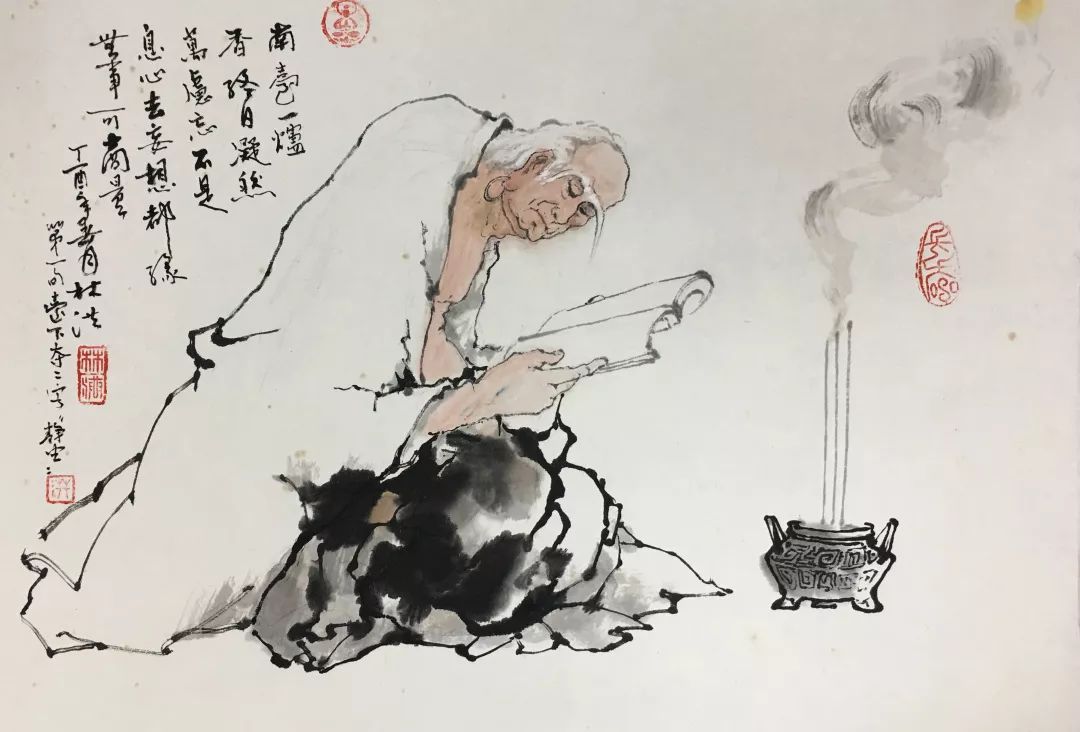 南臺一爐
香終日凝然
萬慮忘不是
息心去妄想都緣
無事可商量
丁酉年春月林
第一句臺下二字靜坐